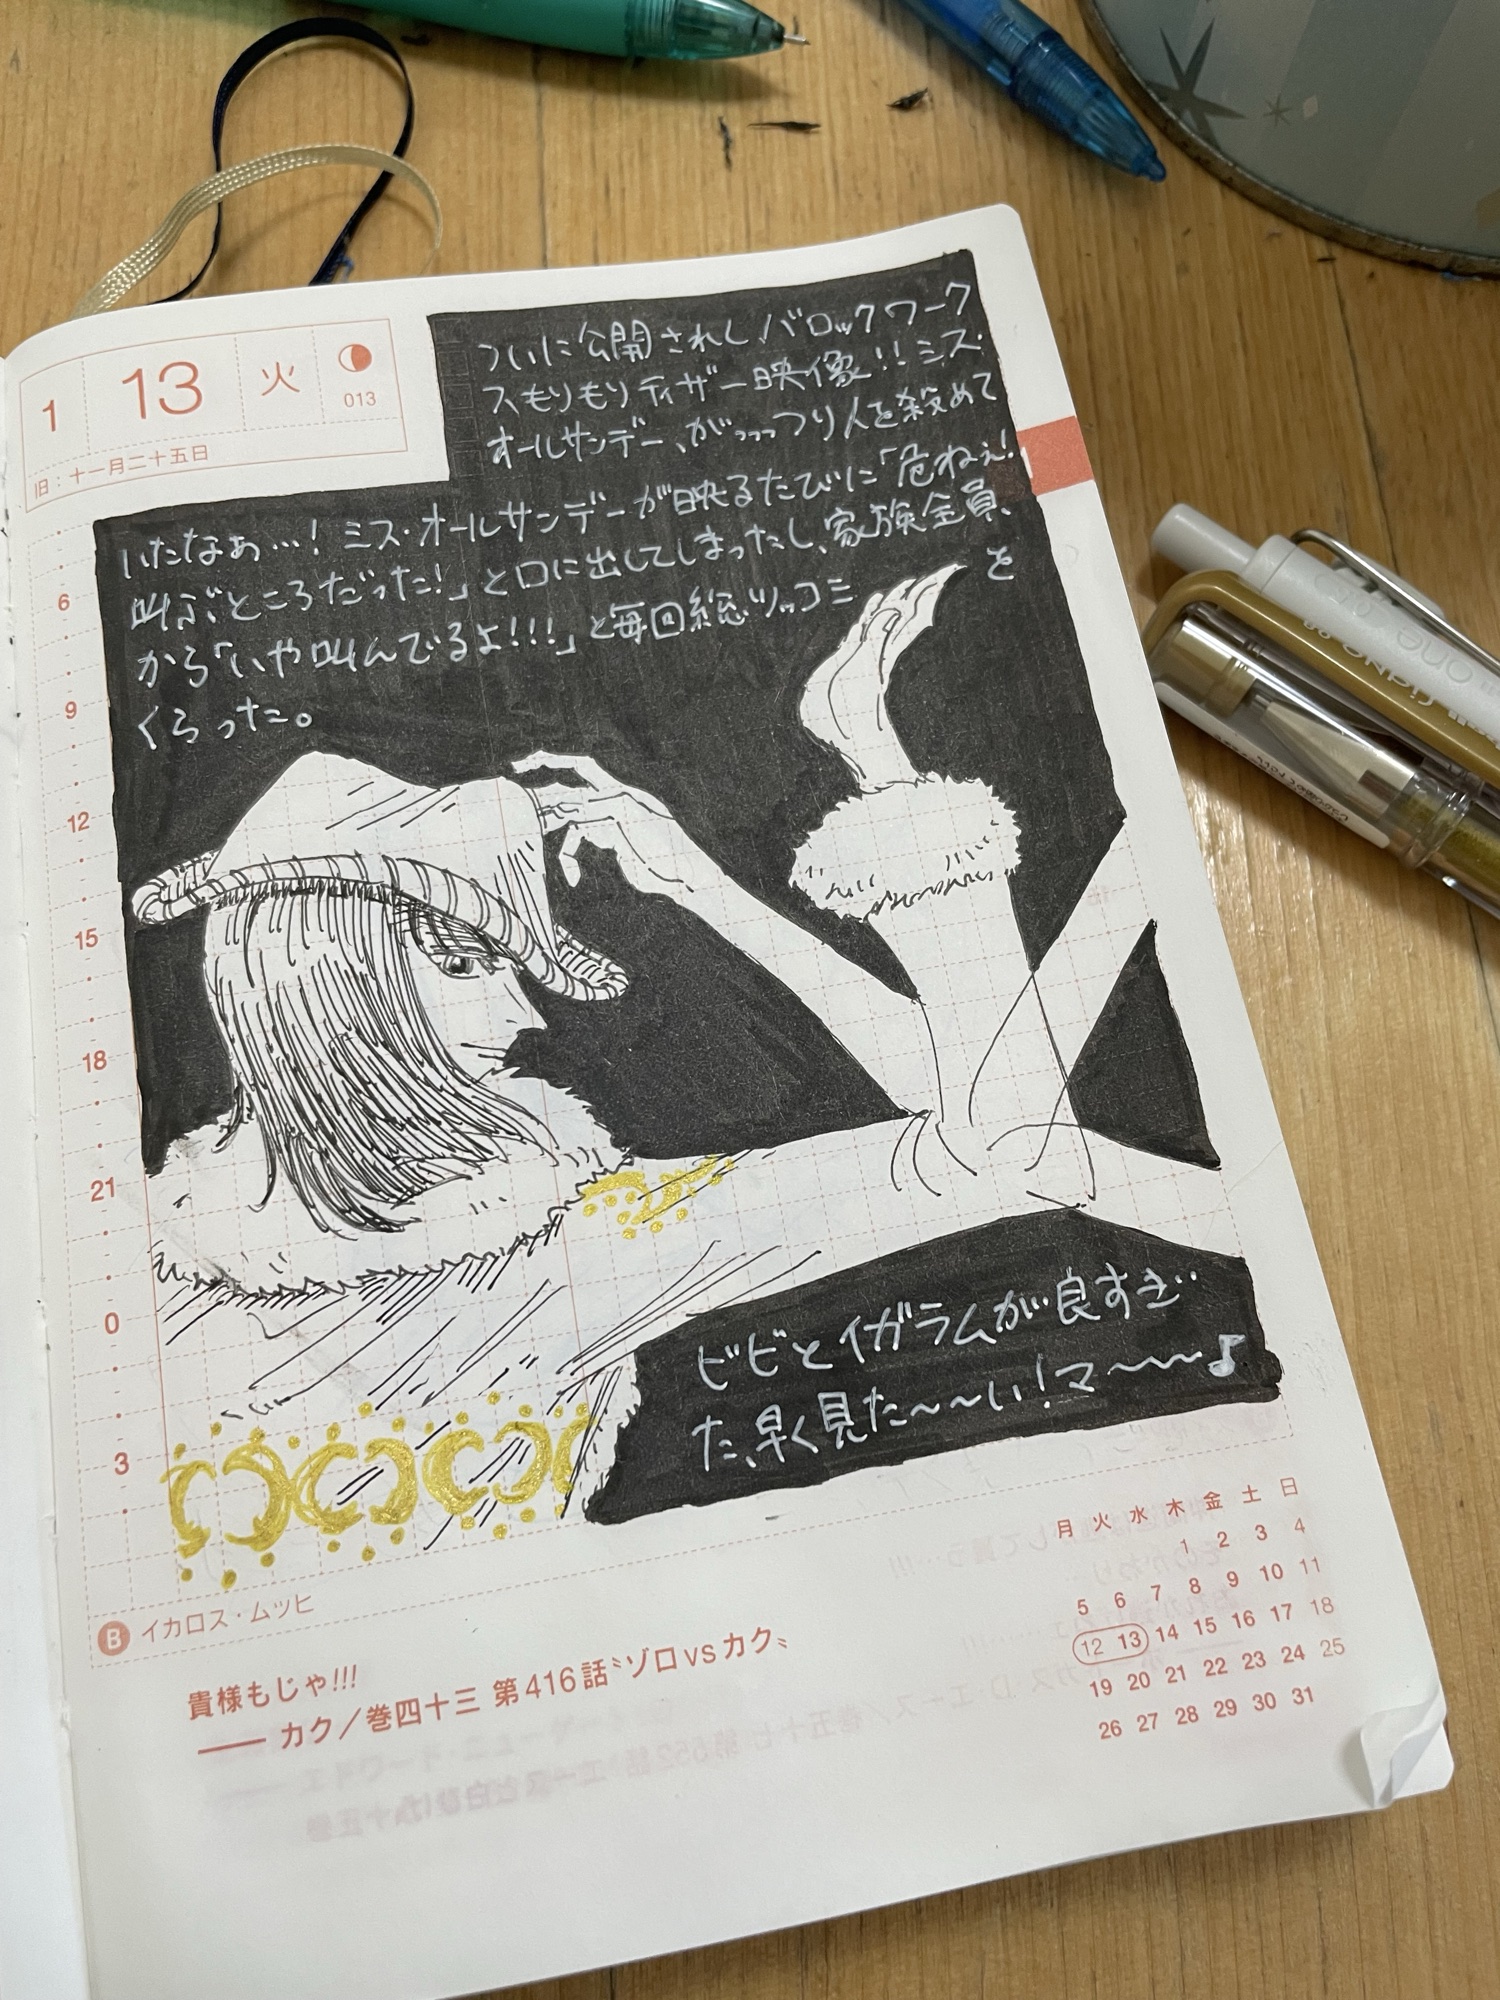 1 13 火 013
旧：十一月二十五日
ついに公開されしバロックワーク
スもりもりティザー映像!!ミス・
オールサンデー、がっっっつり人を殺めて
いたなぁ…！ミス・オールサンデーが映るたびに「危ねぇ!
叫ぶところだった!」と口に出してしまったし、家族全員
から「いや叫んでるよ!!!」と毎回総ツッコミ を
くらった。
6
9
12
15
18
21
0
3
ビビとイガラムが良すぎ
た、早く見た〜〜い！マ〜〜〜♪
B イカロス・ムッヒ
貴様もじゃ!!!
—— カク／巻四十三 第416話〝ゾロvsカク〟
月 火 水 木 金 土 日
1 2 3 4
5 6 7 8 9 10 11
12 13 14 15 16 17 18
19 20 21 22 23 24 25
26 27 28 29 30 31